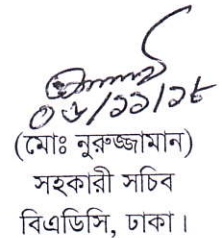 ০৬/১১/১৮
(মোঃ নুরুজ্জামান)
সহকারী সচিব
বিএডিসি, ঢাকা।